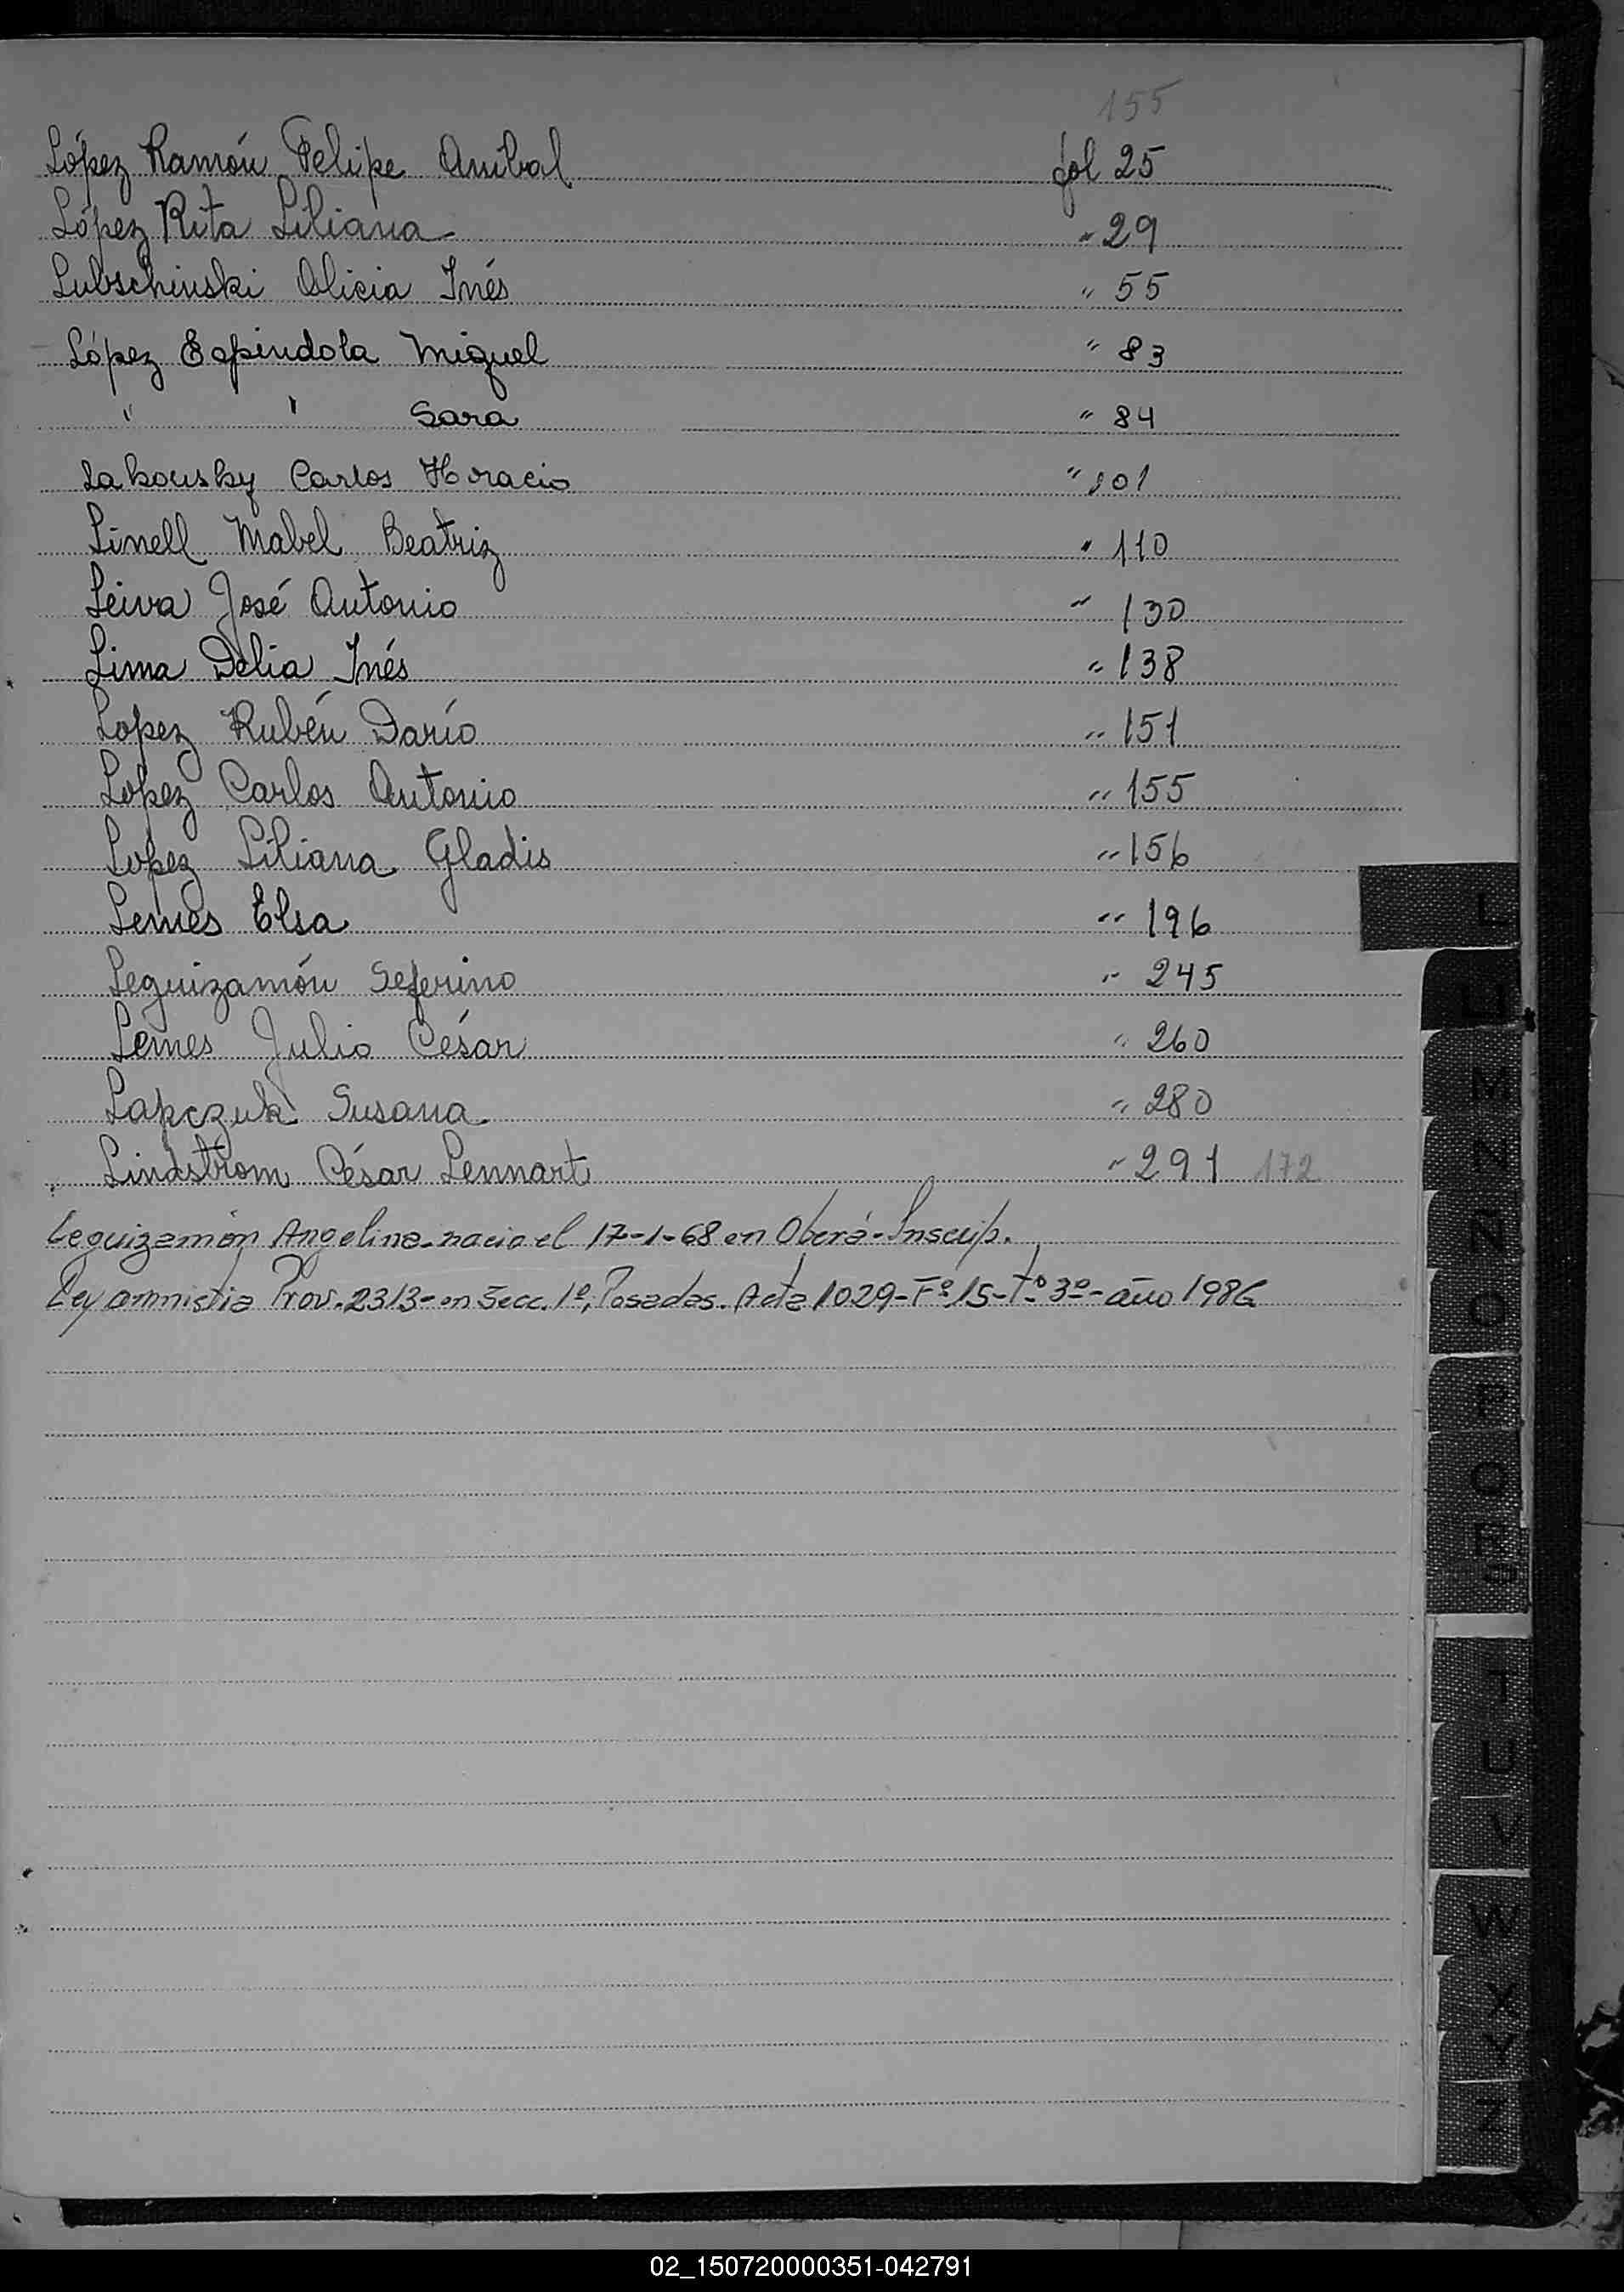 155
López Ramón Felipe Anibal fol 25
López Rita Liliana - " 29
Lubschinski Alicia Inés " 55
López Espindola Miguel " 83
" " Sara " 84
Lakousky Carlos Horacio " 101
Linell Mabel Beatriz " 110
Leiva José Antonio " 130
Lima Delia Inés " 138
Lopez Rubén Darío " 151
Lopez Carlos Antonio " 155
Lopez Liliana Gladis " 156
Lemes Elsa " 196
Leguizamón Seferino " 245
Lemes Julio César " 260
Lapczuk Susana " 280
Lindstrom César Lennart " 291 172
Leguizamón Angelina - nacio el 17-1-68 en Oberá - Inscrip.
Ley amnistia Prov. 2313 - en Secc. 1º, Posadas. Acta 1029 - Fº 15 - Tº 3º - año 1986
L
LL
M
N
Ñ
O
P
Q
R
S
T
U
V
W
X
Y
Z
02_150720000351-042791